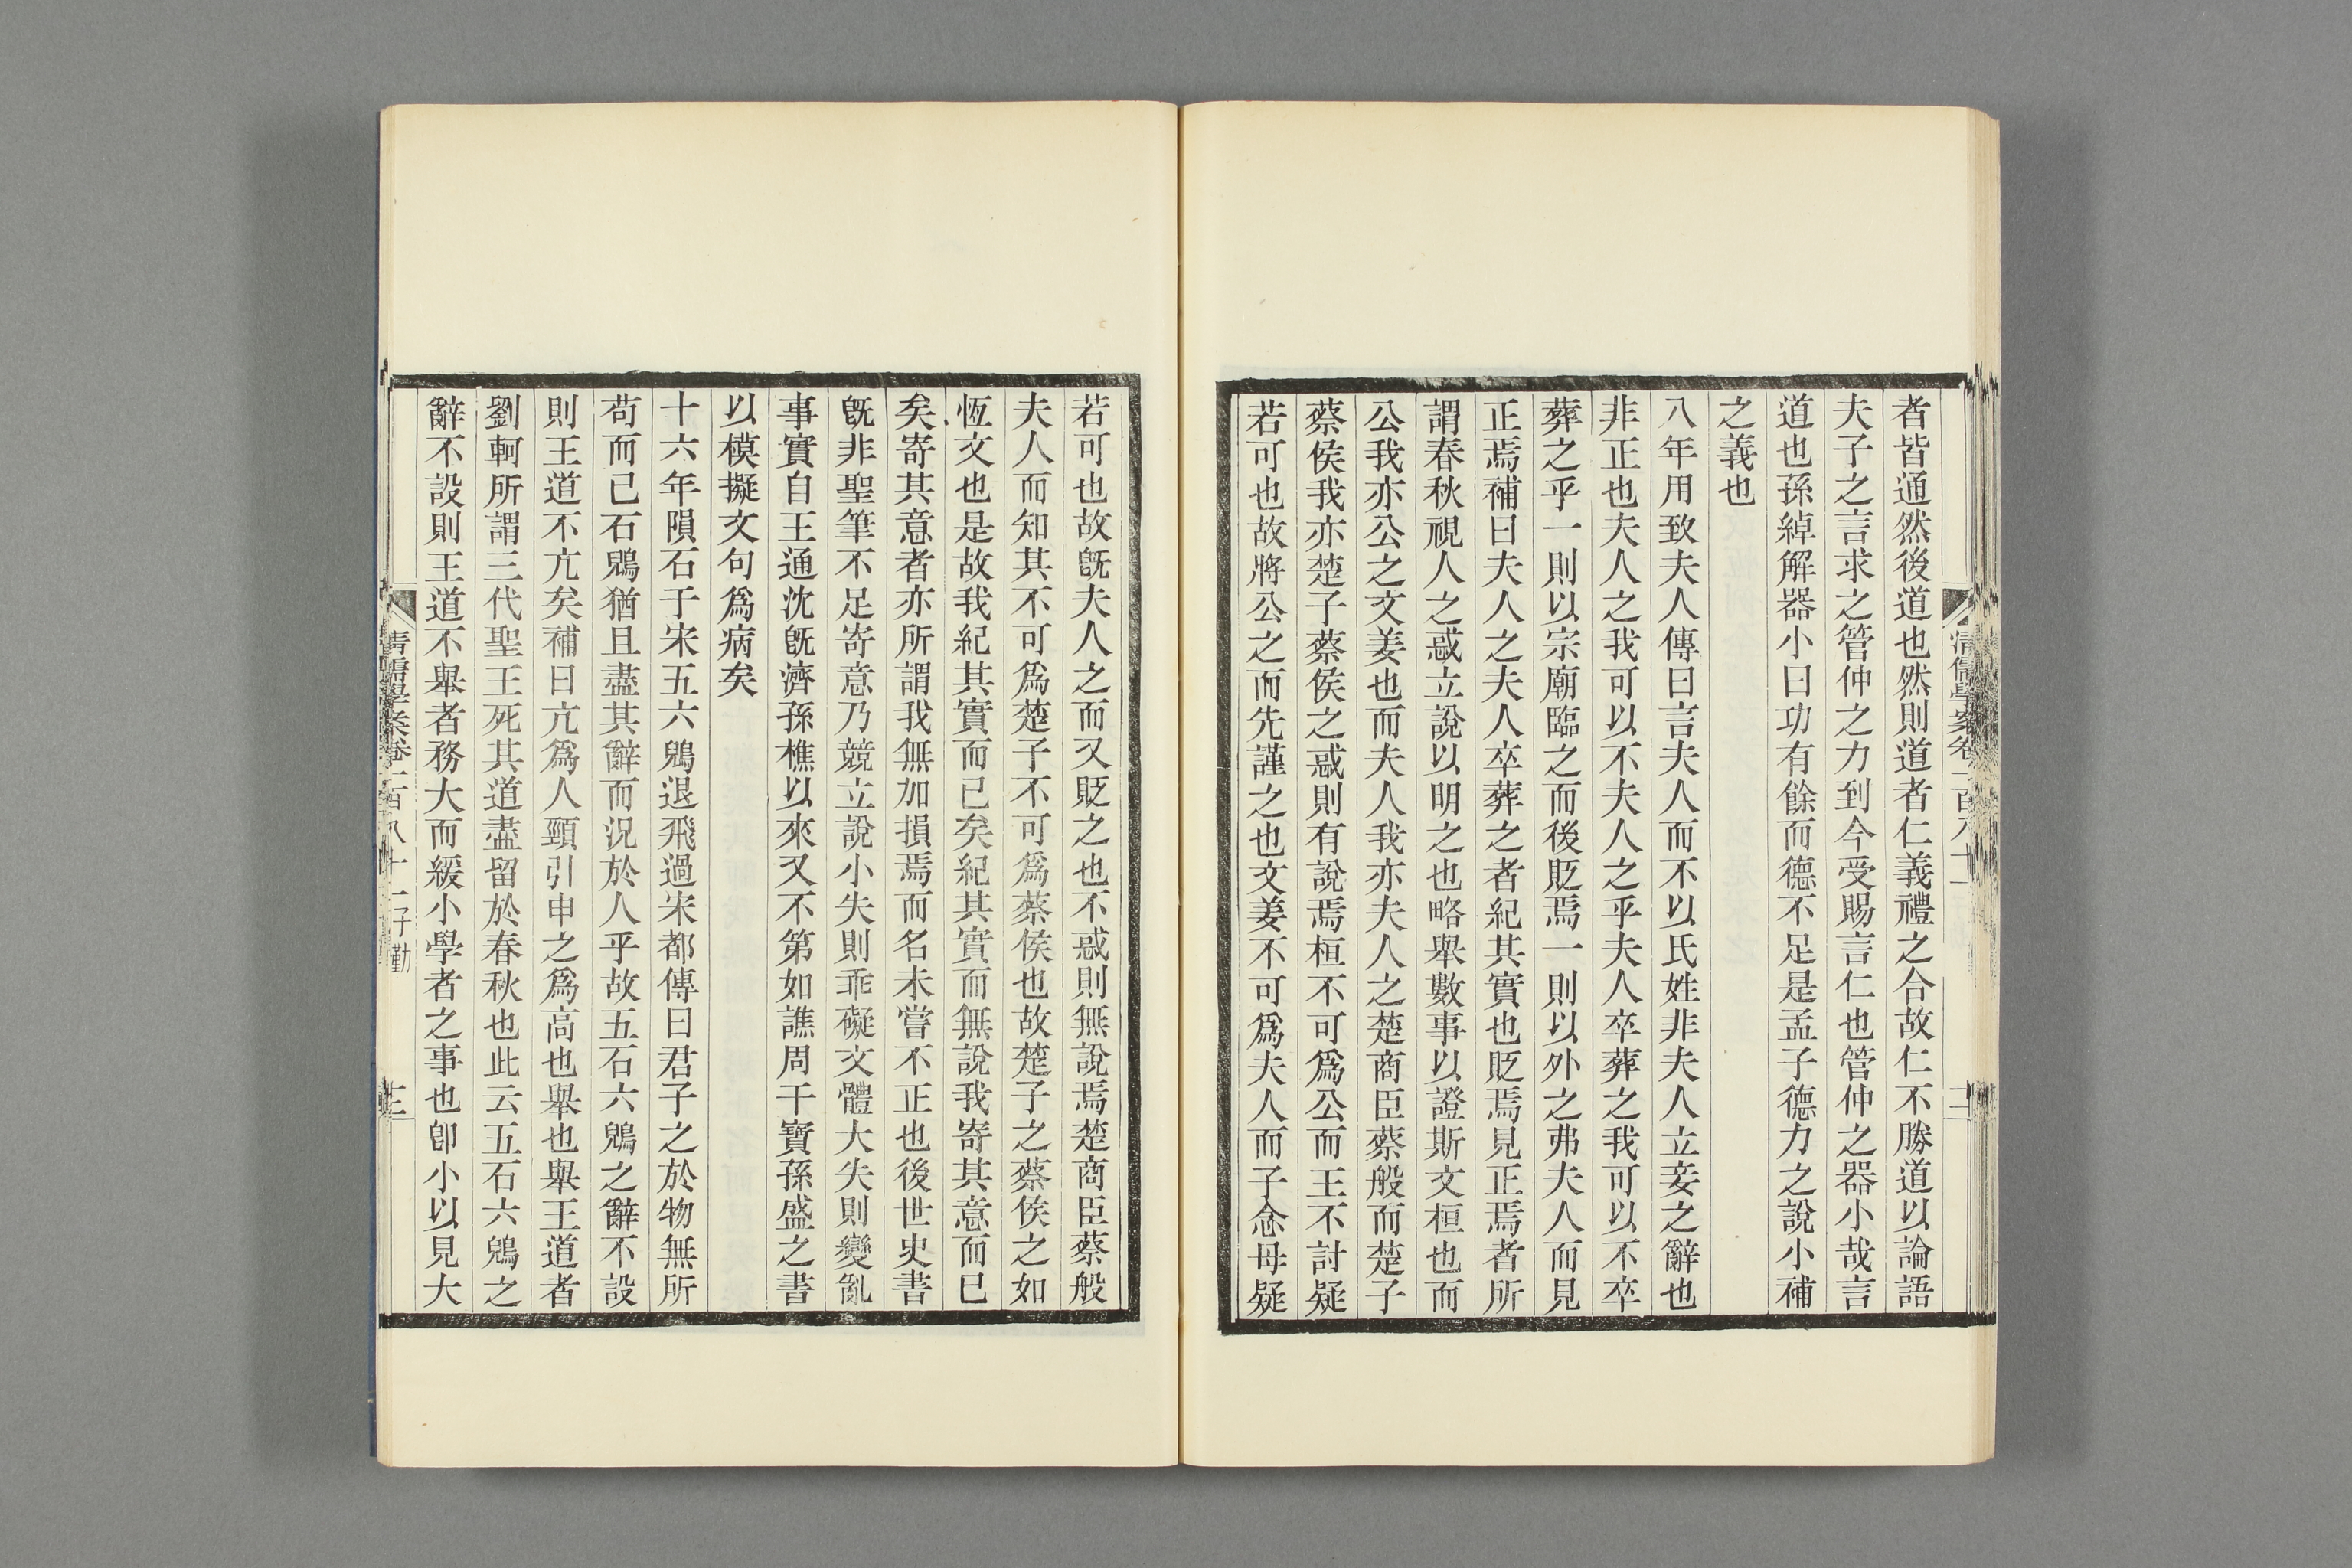 者皆通然後道也然則道者仁義禮之合故仁不勝道以論語
夫子之言求之管仲之力到今受賜言仁也管仲之器小哉言
道也孫綽解器小曰功有餘而德不足是孟子德力之說小補
之義也
八年用致夫人傳曰言夫人而不以氏姓非夫人立妾之辭也
非正也夫人之我可以不夫人之乎夫人卒葬之我可以不卒
葬之乎一則以宗廟臨之而後貶焉一則以外之弗夫人而見
正焉補曰夫人之夫人卒葬之者紀其實也貶焉見正焉者所
謂春秋視人之惑立說以明之也略舉數事以證斯文桓也而
公我亦公之文姜也而夫人我亦夫人之楚商臣蔡般而楚子
蔡侯我亦楚子蔡侯之惑則有說焉桓不可為公而王不討疑
若可也故將公之而先謹之也文姜不可為夫人而子念母疑
若可也故旣夫人之而又貶之也不惑則無說焉楚商臣蔡般
夫人而知其不可為楚子不可為蔡侯也故楚子之蔡侯之如
恆文也是故我紀其實而已矣紀其實而無說我寄其意而已
矣寄其意者亦所謂我無加損焉而名未嘗不正也後世史書
旣非聖筆不足寄意乃競立說小失則乖礙文體大失則變亂
事實自王通沈旣濟孫樵以來又不第如譙周干寶孫盛之書
以模擬文句為病矣
十六年隕石于宋五六鶂退飛過宋都傳曰君子之於物無所
苟而已石鶂猶且盡其辭而況於人乎故五石六鶂之辭不設
則王道不亢矣補曰亢為人頸引申之為高也舉也舉王道者
劉軻所謂三代聖王死其道盡留於春秋也此云五石六鶂之
辭不設則王道不舉者務大而緩小學者之事也卽小以見大
清儒學案卷一百八十一 子勤